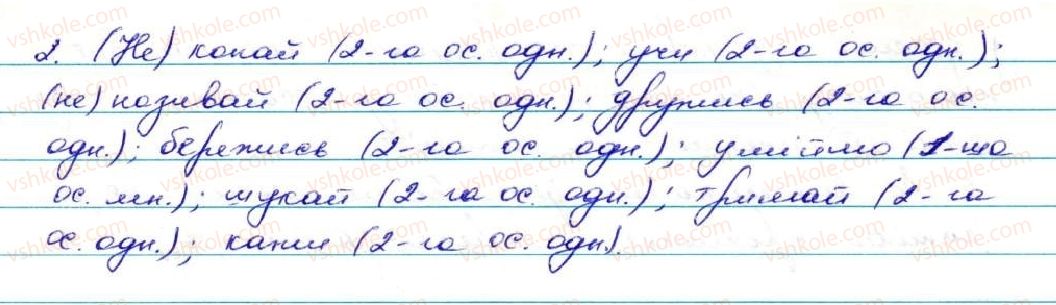 2. (Не) копай (2-га ос. одн.); учи (2-га ос. одн.);
(не) називай (2-га ос. одн.); дружись (2-га ос.
одн.); бережись (2-га ос. одн.); уміймо (1-ша
ос. мн.); шукай (2-га ос. одн.); тримай (2-га
ос. одн.); кажи (2-га ос. одн.).
vshkole.com